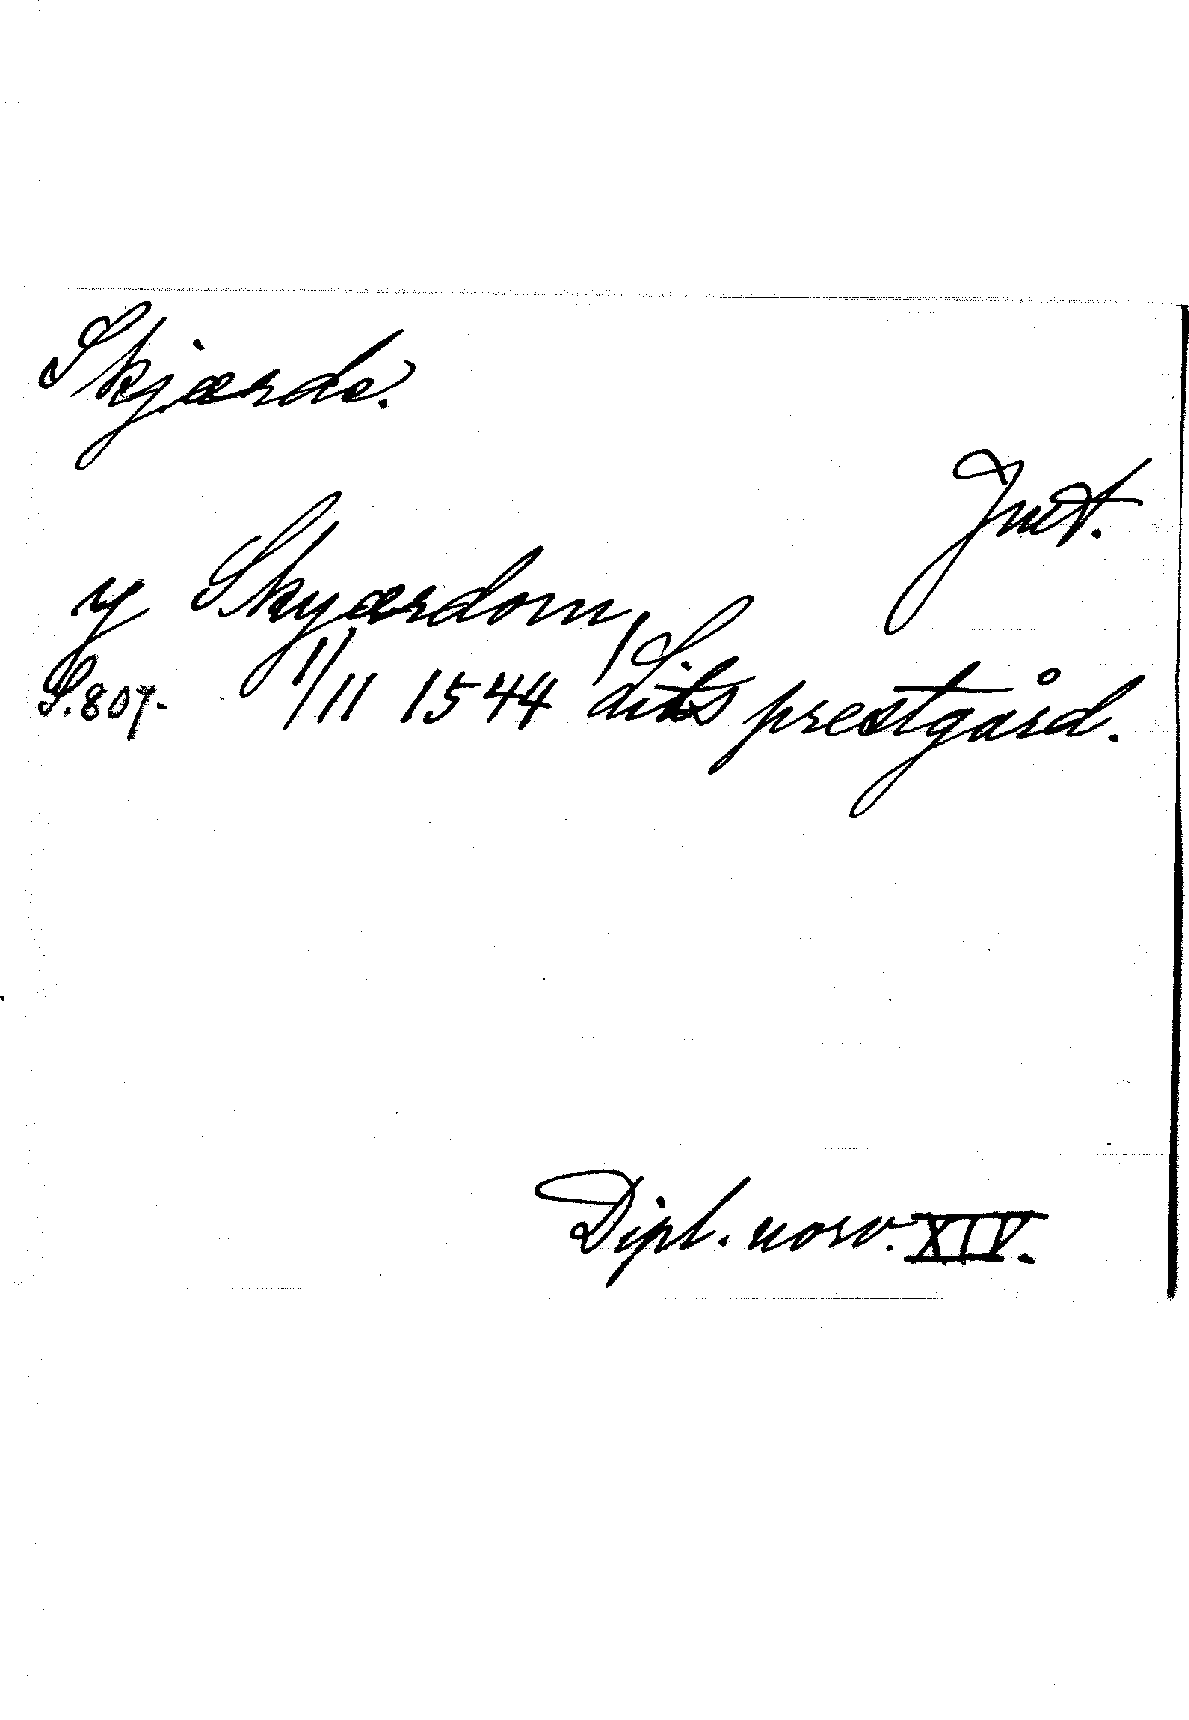 Skjærde.
Jmt.
y Skyærdom,
S. 807. 1/11 1544 Lits prestgård.
Dipl. norv. XIV.